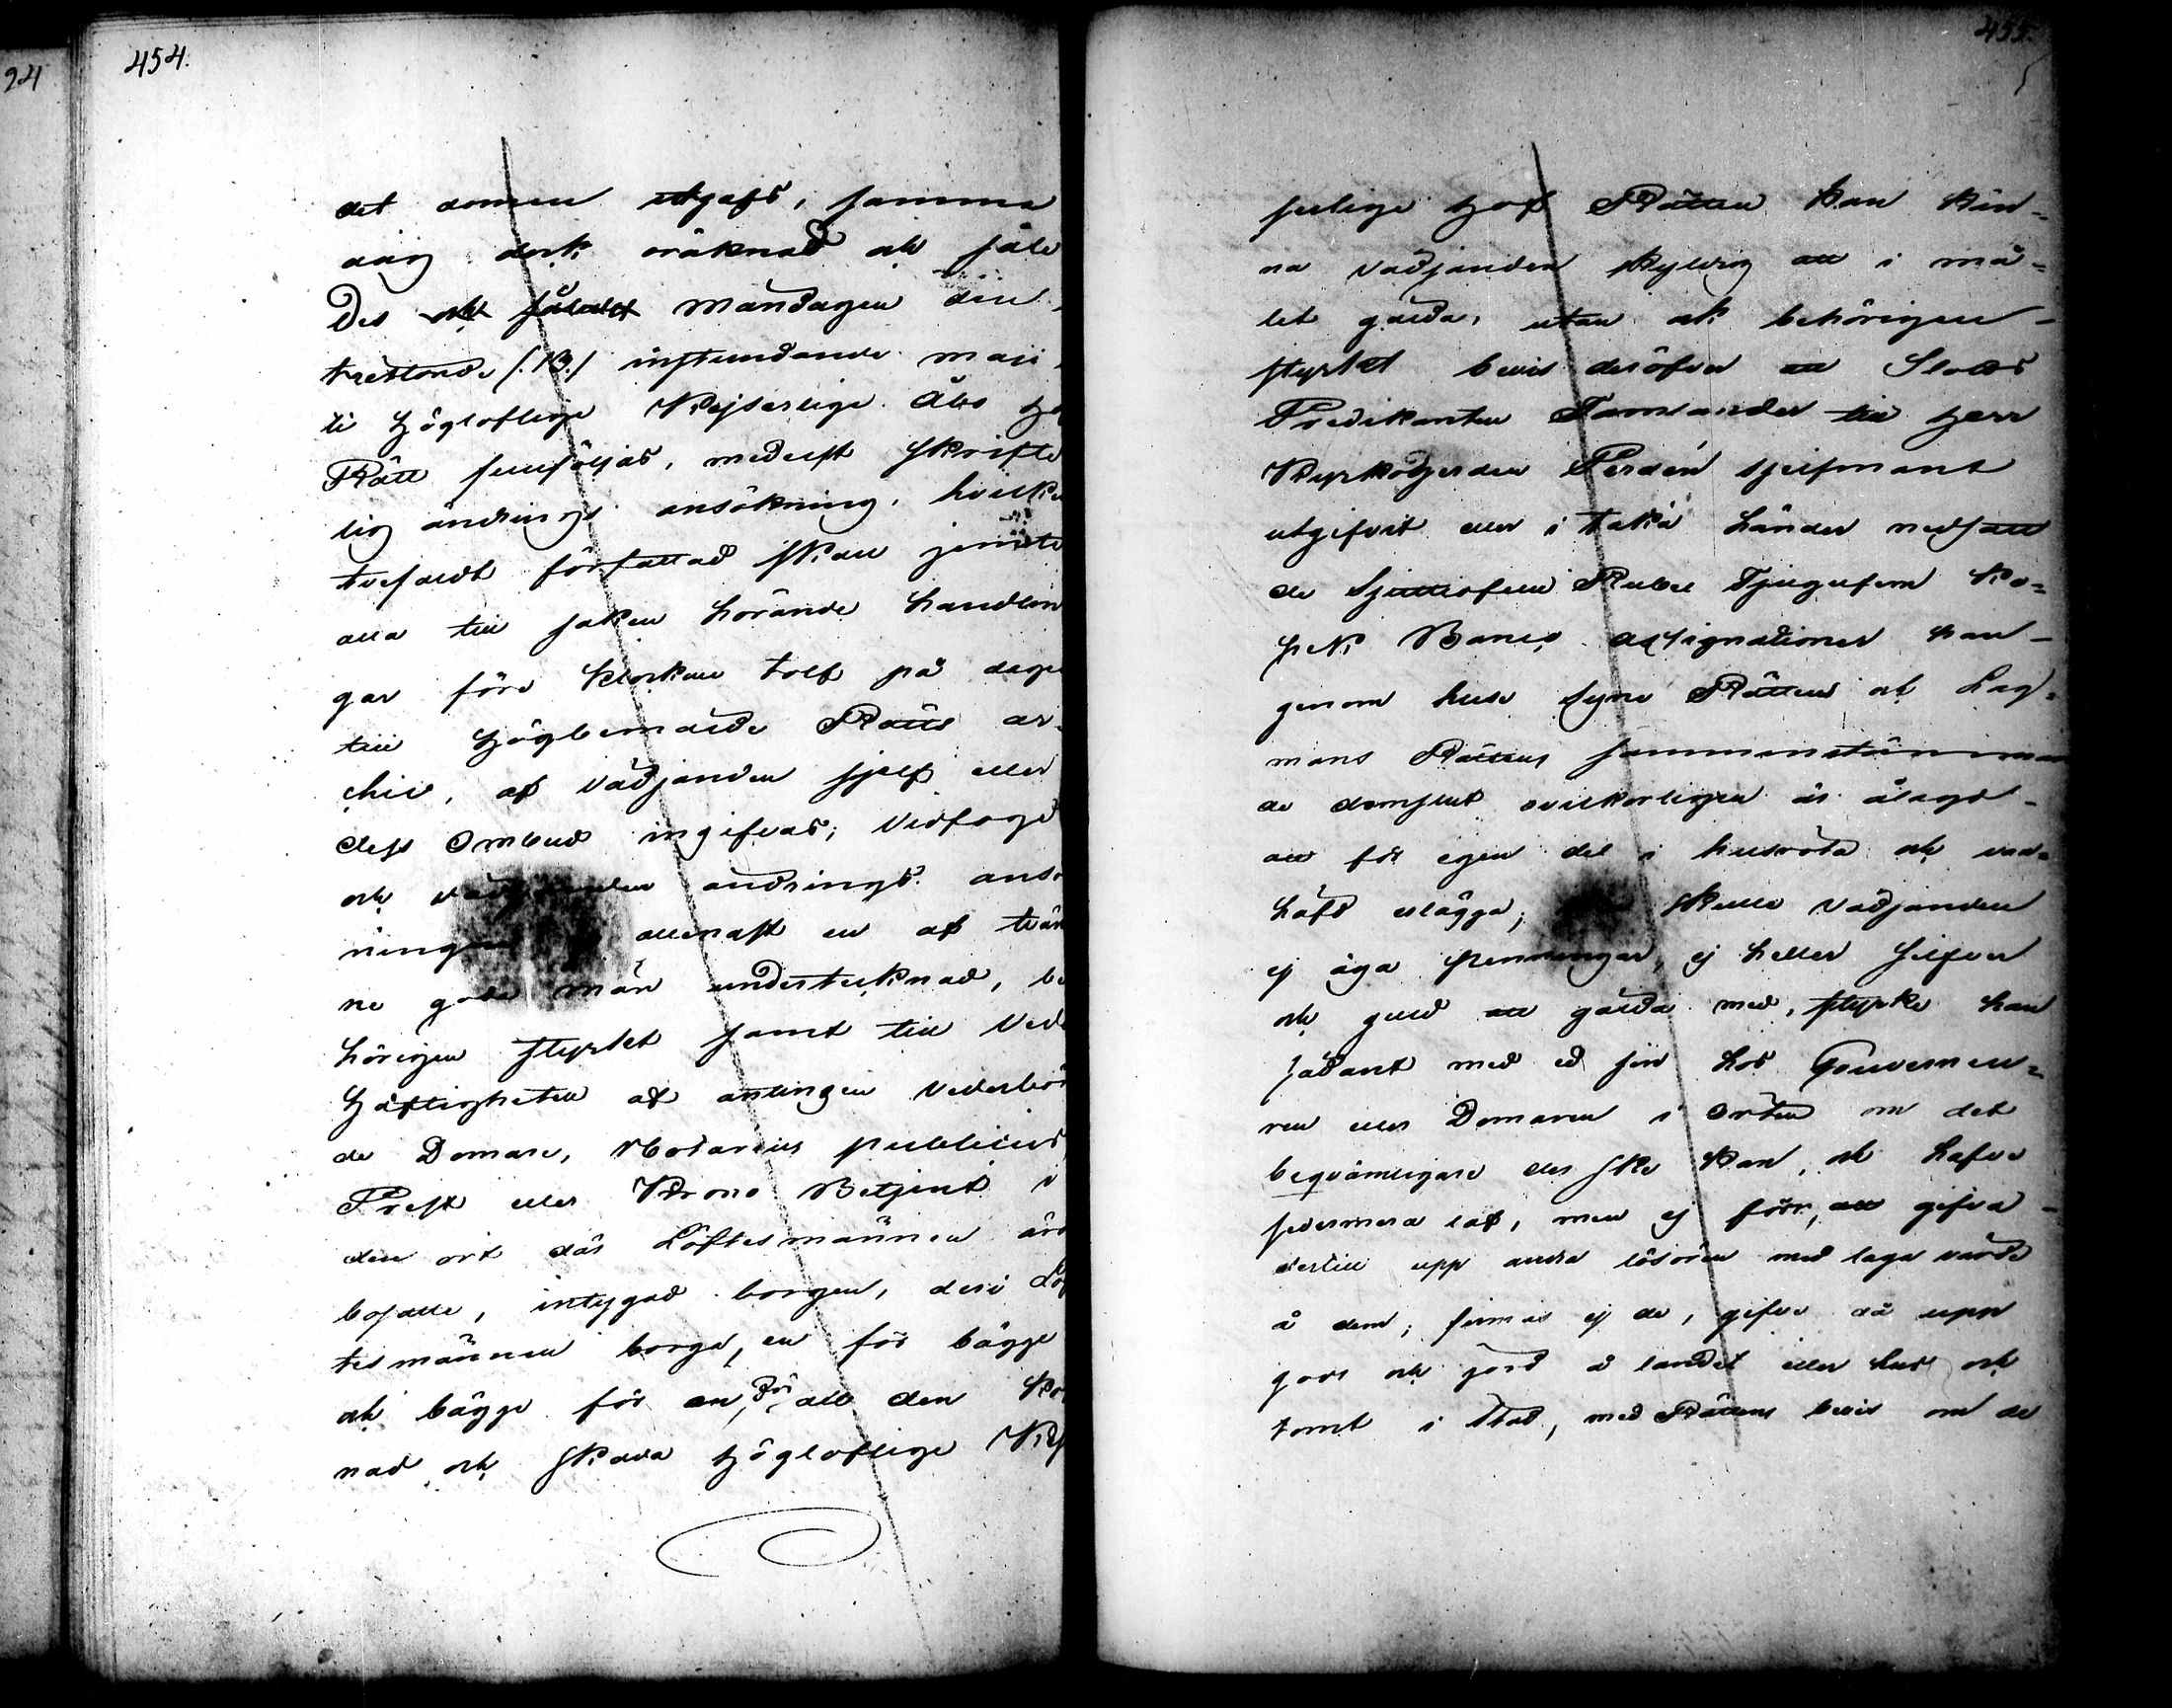 24
454.
det domen utgafs, samma
dag dock oräknad och såle
des och således Mandagen den
trettonde /:13:/ instundande maji
ti Högloflige Kejserlige Åbo Ho
Rätt fullföljas, medelst skrifte
lig ändrings ansökning, hvilke
tvefaldt författad skall jemte
alla till saken hörande handlin
gar före klockan tolf på dage
till Högbemälde Rätts ar-
chiv, af vädjanden sjelf eller
dess Ombud ingifvas; Vidfoge
och vädjanden ändrings ansö
ningen allenast en af tvän
ne gode män undertecknad, be
hörigen styrkt samt till Ved
häftigheten af antingen Vederbör
de Domare, Notarius publicus,
Prest eller Krono Betjent i
den ort där Löftesmännen äro
bosatte, intygad borgen, deri Löf
tesmännen borga, en för bägge
och bägge för en, för all den kos
nad och skada Höglofliga Kejs
455.
serlige Hof Rätten kan kän-
na vädjanden skyldig att i må-
let gälda, utan ock behörigen
styrkt bevis deröfver att Slotts
Predikanten Tamlander till Herr
Kyrkoherden Perdén sjelfmant
utgifvit eller i taka händer nedsatt
de Sjuttiofem Rubel Tjugufem Ko-
pek Banco assignationer han
genom huse syne Rättens och Lag-
mans Rättens sammanstämman
de domslut ovilkorligen är ålagd
att för egen del i husröta och van-
häfd erlägga; skulle vädjanden
ej äga penningar, ej heller silfver
och guld att gälda med, styrke han
sådant med ed sin hos Gouverneu-
ren eller Domaren i Orten om det
beqvämligare der ske kan, och hafve
sedermera låf, men ej förr, att gifva
dertill upp andra lösören med laga värde
å dem; finnas ej de, gifve då upp
gods och jord å landet eller hus och
tomt i Stad, med Rättens bevis om de